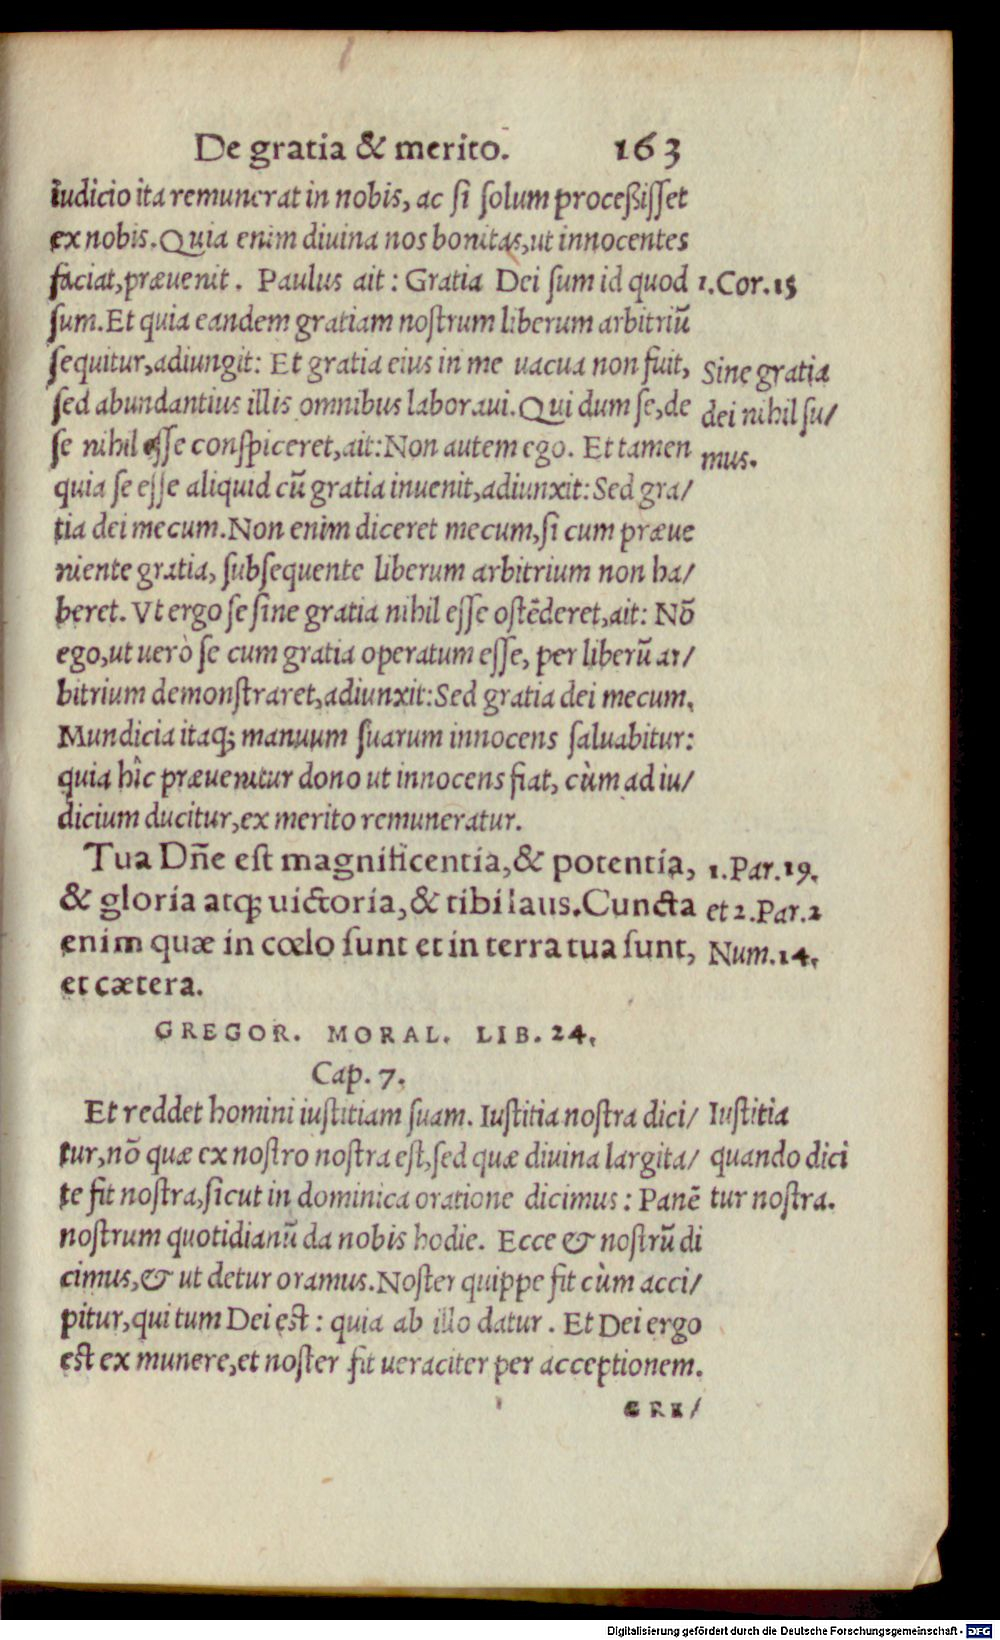 De gratia & merito. 163
iudicio ita remunerat in nobis, ac si solum proceßisset
ex nobis. Quia enim divina nos bonitas, ut innocentes
faciat, prævenit. Paulus ait: Gratia Dei sum id quod
1.Cor.15
sum. Et quia eandem gratiam nostrum liberum arbitriũ
sequitur, adiungit: Et gratia eius in me vacua non fuit,
Sine gratia
sed abundantius illis omnibus laboravi. Qui dum se, de
dei nihil su/
se nihil esse conspiceret, ait: Non autem ego. Et tamen
mus.
quia se esse aliquid cũ gratia invenit, adiunxit: Sed gra/
tia dei mecum. Non enim diceret mecum, si cum præve
niente gratia, subsequente liberum arbitrium non ha/
beret. Vt ergo se sine gratia nihil esse ostẽderet, ait: Nõ
ego, ut uerò se cum gratia operatum esse, per liberũ ar/
bitrium demonstraret, adiunxit: Sed gratia dei mecum.
Mundicia itaq; manuum suarum innocens saluabitur:
quia hîc prævenitur dono ut innocens fiat, cùm ad iu/
dicium ducitur, ex merito remuneratur.
Tua Dñe est magnificentia, & potentia,
1.Par.19.
& gloria atq; uictoria, & tibi laus. Cuncta
et 2.Par.2
enim quæ in cœlo sunt et in terra tua sunt,
Num.14.
et cætera.
GREGOR. MORAL. LIB. 24.
Cap. 7.
Et reddet homini iustitiam suam. Iustitia nostra dici/
Iustitia
tur, nõ quæ ex nostro nostra est, sed quæ divina largita/
quando dici
te fit nostra, sicut in dominica oratione dicimus: Panẽ
tur nostra.
nostrum quotidianũ da nobis hodie. Ecce & nostrũ di
cimus, & ut detur oramus. Noster quippe fit cùm acci/
pitur, qui tum Dei est: quia ab illo datur. Et Dei ergo
est ex munere, et noster fit ueraciter per acceptionem.
GRE/
Digitalisierung gefördert durch die Deutsche Forschungsgemeinschaft - DFG